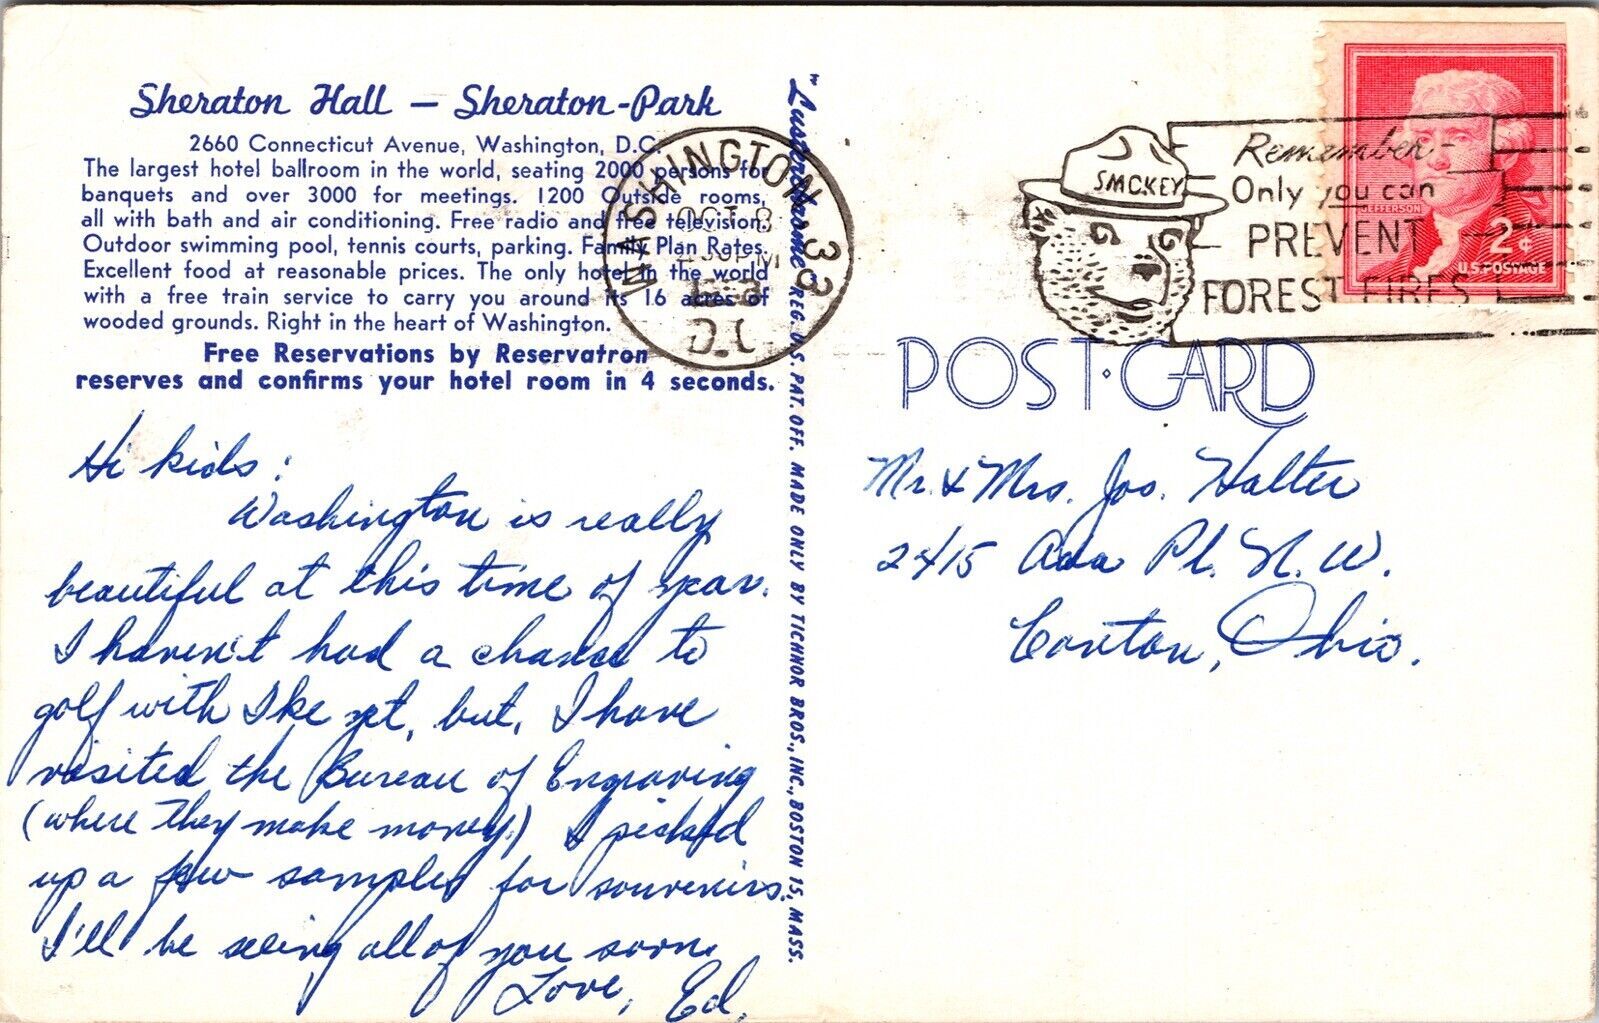 Sheraton Hall — Sheraton-Park
2660 Connecticut Avenue, Washington, D.C.
The largest hotel ballroom in the world, seating 2000 persons for
banquets and over 3000 for meetings. 1200 Outside rooms,
all with bath and air conditioning. Free radio and free television.
Outdoor swimming pool, tennis courts, parking. Family Plan Rates.
Excellent food at reasonable prices. The only hotel in the world
with a free train service to carry you around its 16 acres of
wooded grounds. Right in the heart of Washington.
Free Reservations by Reservatron
reserves and confirms your hotel room in 4 seconds.
Hi kids:
Washington is really
beautiful at this time of year.
I haven't had a chance to
golf with Ike yet, but, I have
visited the Bureau of Engraving
(where they make money.) I picked
up a few samples for souvenirs.
I'll be seeing all of you soon.
Love, Ed.
"Lusterchrome" REG. U.S. PAT. OFF. MADE ONLY BY TICHNOR BROS., INC., BOSTON 15, MASS.
WASHINGTON 33
OCT 8
PM
D.C
SMOKEY
Remember-
Only you can
PREVENT
FOREST FIRES
JEFFERSON
2¢
U.S. POSTAGE
POST CARD
Mr. & Mrs. Jos. Halter
2415 Ada Pl. N.W.
Canton, Ohio.